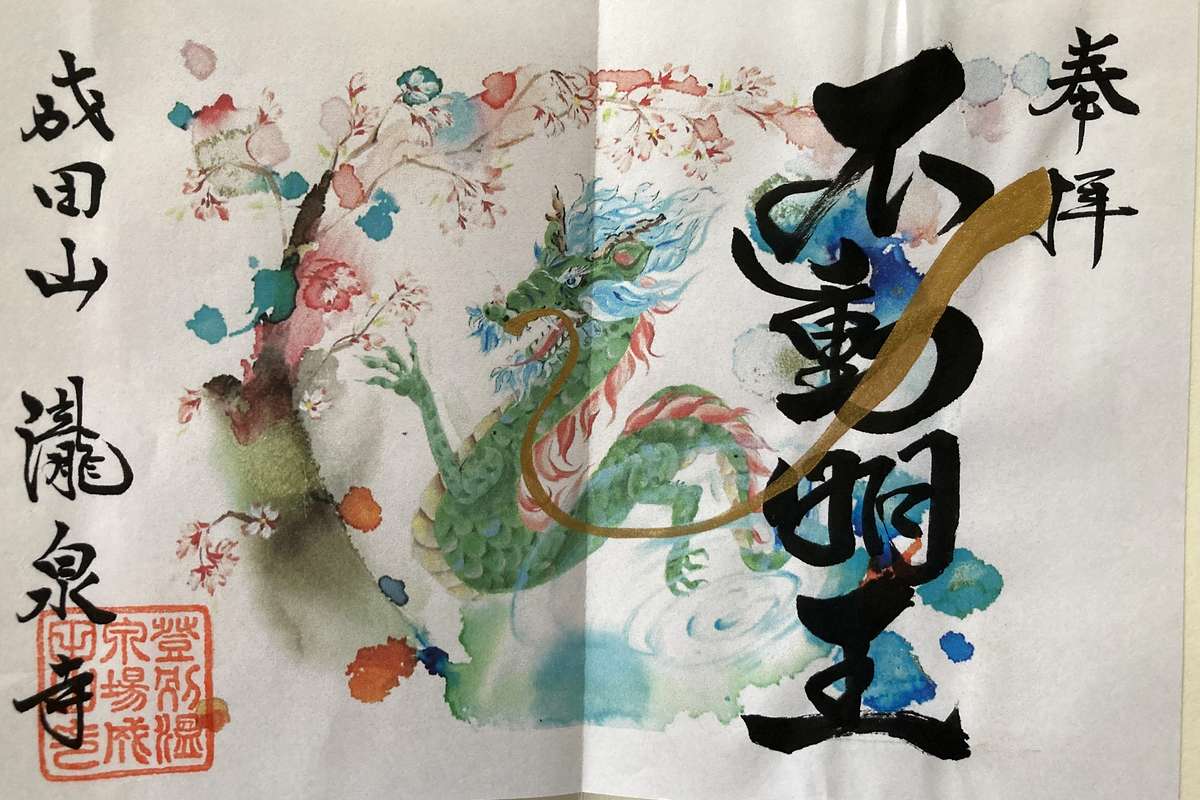 奉拝
不動明王
成田山 瀧泉寺
登別温
泉場成
田山